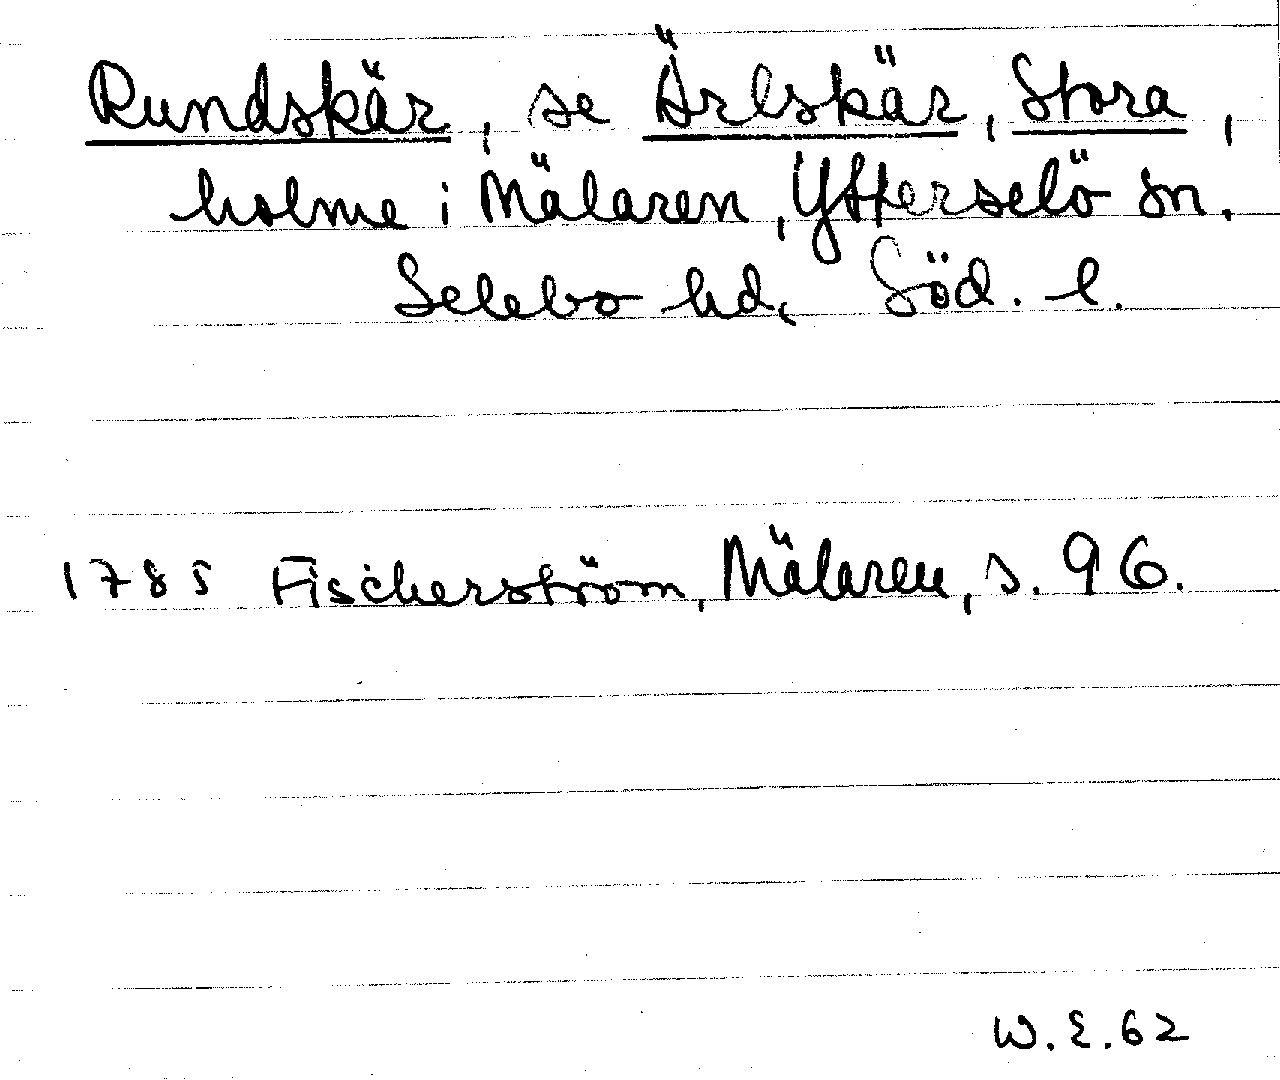 Rundskär, se Ärlskär, Stora,
holme i Mälaren, Ytterselö sn.
Selebo hd, Söd. l.
1785 Fischerström, Mälaren, s. 96.
W.E.62